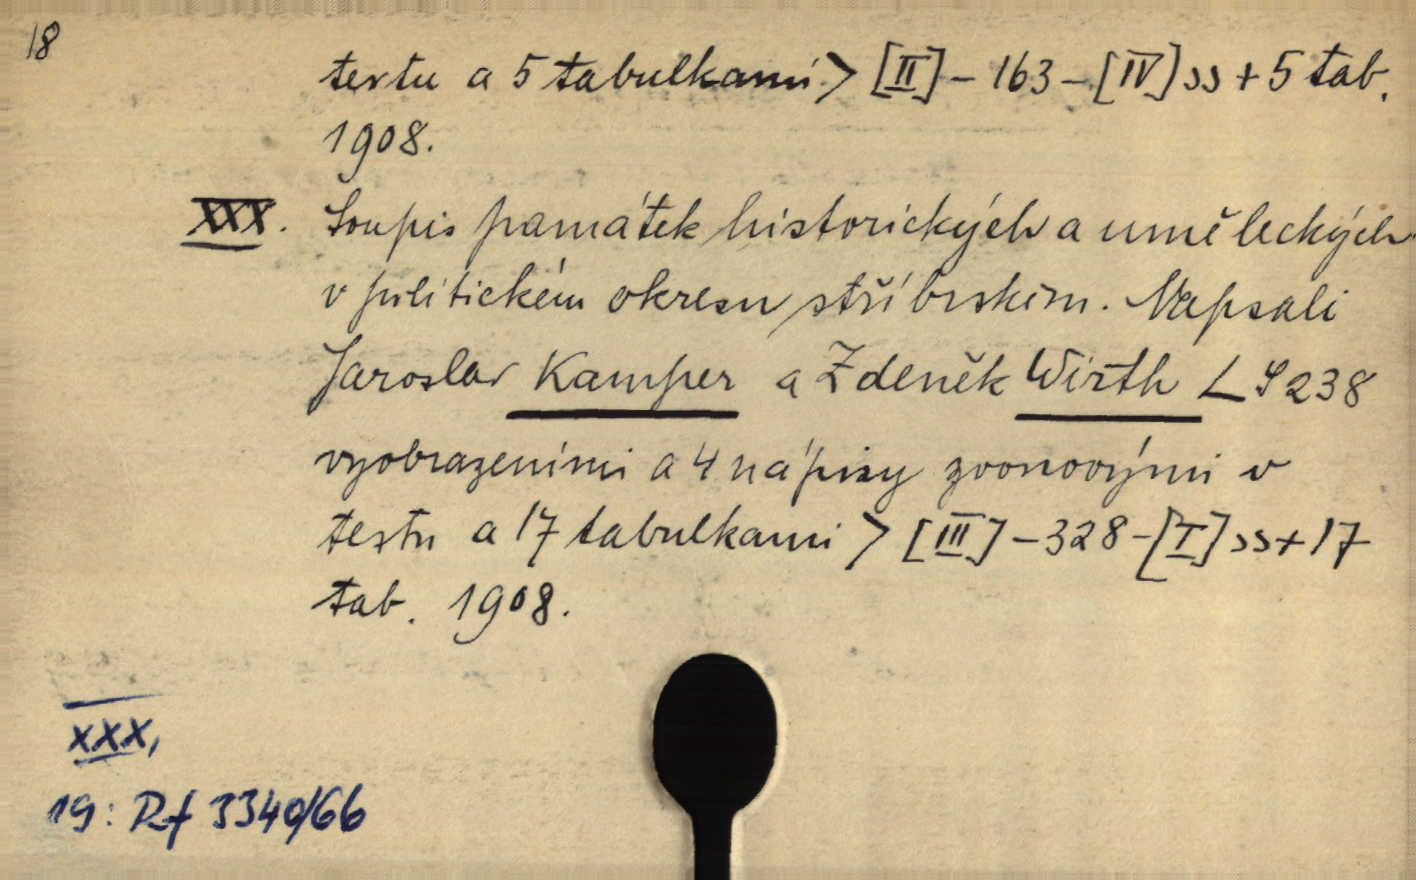 18
textu a 5 tabulkami > [II] - 163 - [IV] ss + 5 tab.
1908.
XXX. Soupis památek historických a uměleckých
v politickém okresu stříbrském. Napsali
Jaroslav Kamper a Zdeněk Wirth < S 238
vyobrazeními a 4 nápisy zvonovými v
textu a 17 tabulkami > [III] - 328 - [I] ss + 17
tab. 1908.
XXX,
19: Rf 3340/66